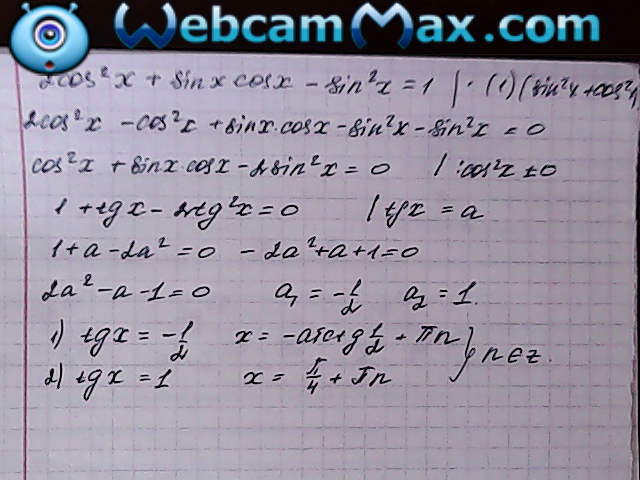 WebcamMax.com
2cos²x + sinx cosx - sin²x = 1 | · (1) (sin²x + cos²x
2cos²x - cos²x + sinx·cosx - sin²x - sin²x = 0
cos²x + sinx·cosx - 2sin²x = 0 | :cos²x ≠ 0
1 + tgx - 2tg²x = 0 | tgx = a
1 + a - 2a² = 0 - 2a² + a + 1 = 0
2a² - a - 1 = 0 a₁ = -1/2 a₂ = 1.
1) tgx = -1/2 x = -arctg 1/2 + πn } n ∈ z.
2) tgx = 1 x = π/4 + πn